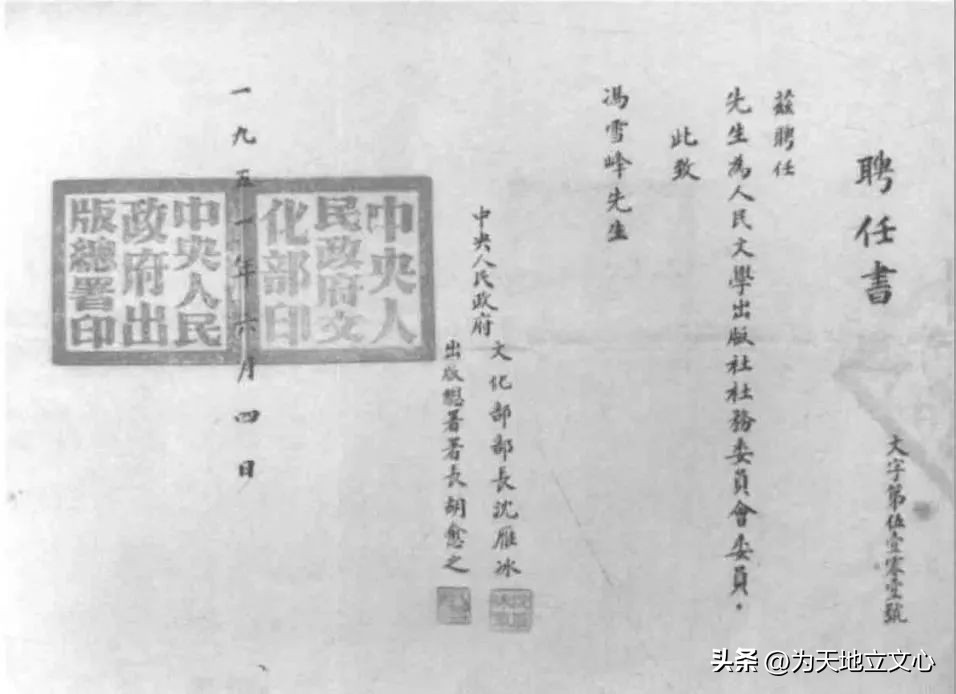 聘任書
文字第伍壹零壹號
茲聘任
先生為人民文學出版社社務委員會委員。
此致
馮雪峰先生
中央人民政府
文化部部長沈雁冰
出版總署署長胡愈之
一九五一年六月四日
中央人
民政府文
化部印
中央人民
政府出
版總署印
头条 @为天地立文心